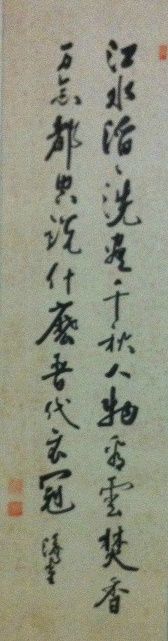 江水滔〻洗盡千秋人物看雲焚香
万念都空說什麽晉代衣冠